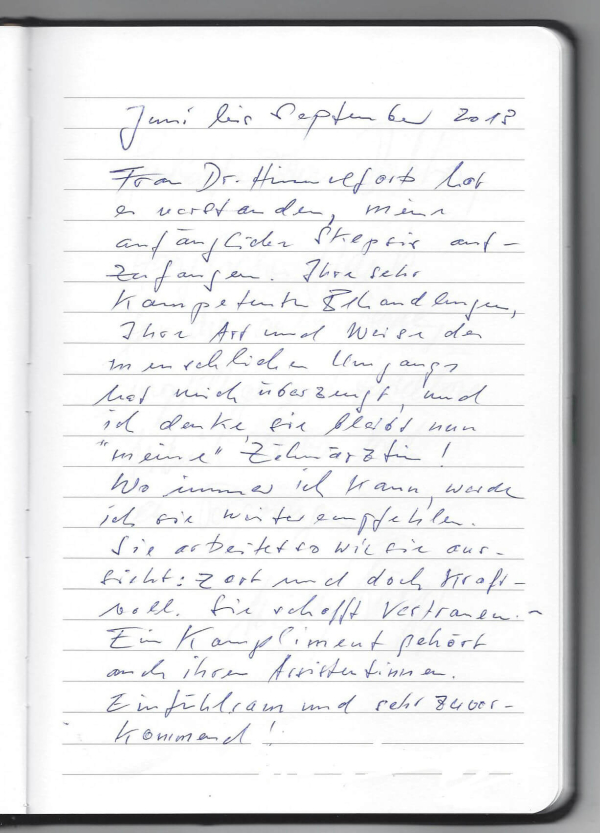 Juni bis September 2013
Frau Dr. Himmelfarb hat
es verstanden, meine
anfänglichen Skepsis auf-
zufangen. Ihre sehr
kompetenten Behandlungen,
Ihre Art und Weise des
menschlichen Umgangs
hat mich überzeugt, und
ich denke, sie bleibt nun
"meine" Zahnärztin!
Wo immer ich kann, werde
ich sie weiterempfehlen.
Sie arbeitet so wie sie aus-
sieht: zart und doch kraft-
voll. Sie schafft Vertrauen. -
Ein Kompliment gehört
auch ihren Assistentinnen.
Einfühlsam und sehr zuvor-
kommend!